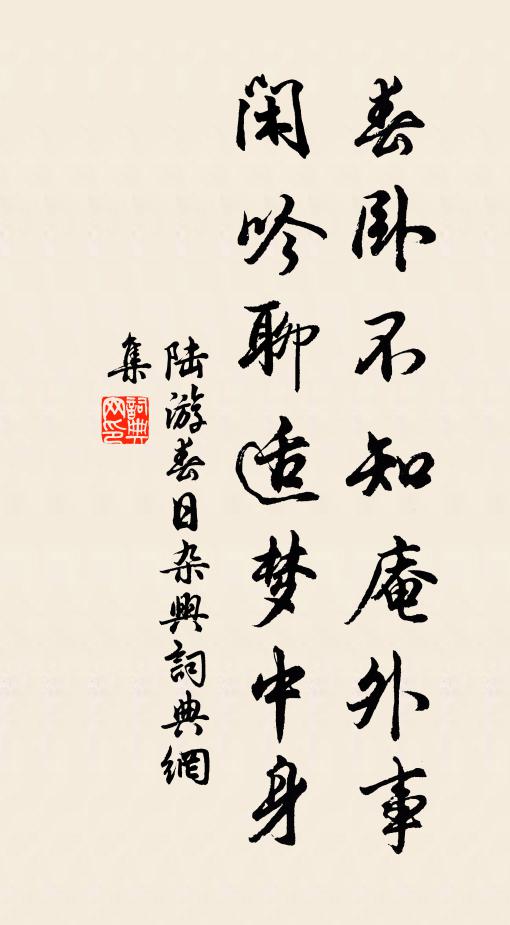 春卧不知庵外事
闲吟聊适梦中身
陆游春日杂興詞典網
集
詞典
网印